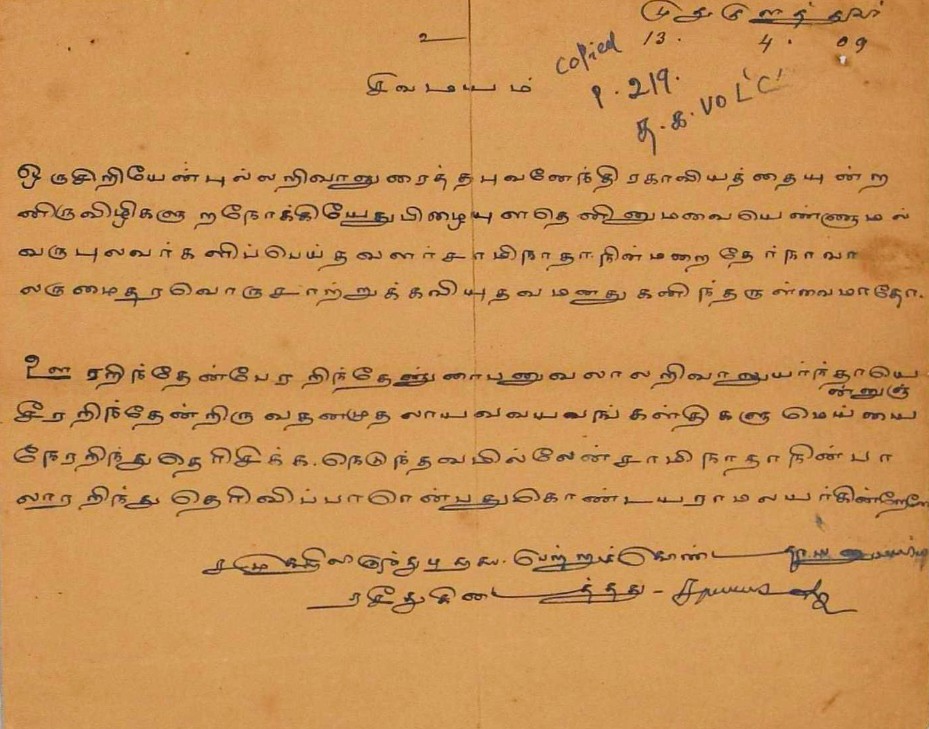 முதுகுளத்தூர்
உ
13. 4. 09
copied
சிவமயம்
p. 219.
த.க. VOL 'C'
ஒருசிறியேன்புல்லறிவானுரைத்தபுவனேந்திரகாவியத்தையுன்ற
னிருவிழிகளுறநோக்கியேதுபிழையுளதெனினுமவையெண்ணாமல்
வருபுலவர்களிப்பெய்தவளர்சாமிநாதாநின்மறைதேர்நாவா
லருமைதரவொருசாற்றுக்கவியுதவமனதுகனிந்தருள்வைமாதோ.
ஊரறிந்தேன்பேரறிந்தேனுனுவலாலறிவானுயர்ந்தாயெ
ன்னுஞ்
சீரறிந்தேன்றிருவதனமுதலாயவவயவங்கள்திகளுமெய்யை
நேரறிந்துதெரிசிக்க. நெடுந்தவமில்லேன்சாமிநாதாநின்பா
லாரறிந்து தெரிவிப்பாரென்பதுகொண்டயராமலயர்கின்றேனே
பெற்றுமகொண்